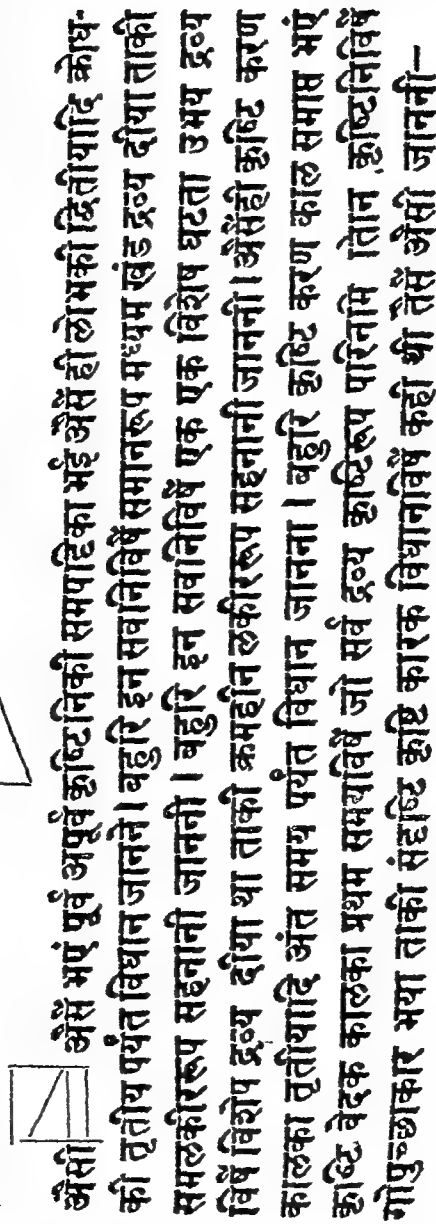 औसी औसैं भएं पूर्व अपूर्व कृष्टिनिकी समपट्टिका भई औसैं ही लोभकी द्वितीयादि क्रोध-
की तृतीय पर्यंत विधान जानने। बहुरि इन सबनिविषैं समानरूप मध्यम खंड द्रव्य दीया ताकी
समलकीररूप सहनानी जाननी। बहुरि इन सबनिविषैं एक एक विशेष घटता उभय द्रव्य
विषैं विशेष द्रव्य दीया था ताकी क्रमहीन लकीररूप सहनानी जाननी। औसैंही कृष्टि करण
कालका तृतीयादि अंत समय पर्यंत विधान जानना। बहुरि कृष्टि करण काल समाप्त भएं
कृष्टि वेदक कालका प्रथम समयविषैं जो सर्व द्रव्य कृष्टिरूप परिनमि तिान कृष्टिनिविषैं
गोपुच्छाकार भया ताकी संदृष्टि कृष्टि कारक विधानविषैं कही थी तैसैं औसी जाननी—